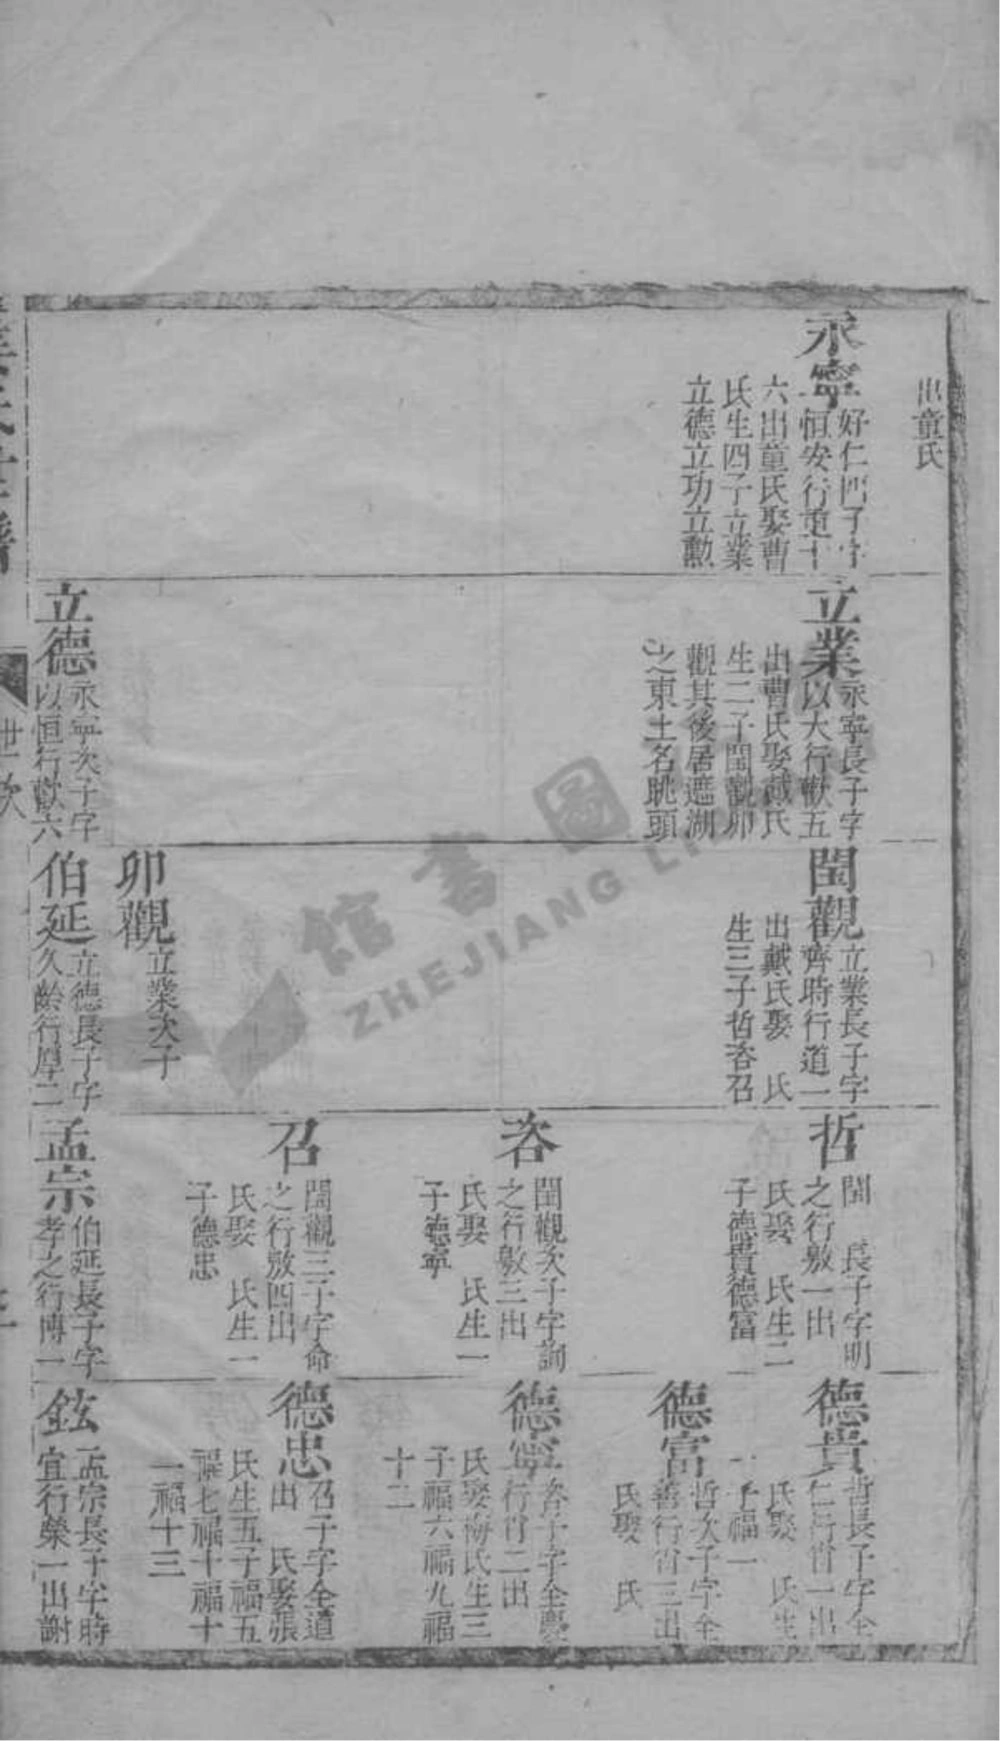 出童氏
永寧
好仁四子字
恒安行重十
六出童氏娶曹
氏生四子立業
立德立功立勳
立業
永寧長子字
以大行猷五
出曹氏娶戴氏
生二子閏觀卯
觀其後居遮湖
之東土名眺頭
立德
永寧次子字
以恒行猷六
閏觀
立業長子字
齊時行道一
出戴氏娶 氏
生三子哲咨召
卯觀
立業次子
伯延
立德長子字
久齡行厚二
哲
閏 長子字明
之行敫一出
氏娶 氏生二
子德貴德富
咨
閏觀次子字詢
之行敫三出
氏娶 氏生一
子德寧
召
閏觀三子字命
之行敫四出
氏娶 氏生一
子德忠
孟宗
伯延長子字
孝之行博一
德貴
哲長子字全
仁行胄一出
氏娶 氏生
一子福一
德富
哲次子字全
善行胄三出
氏娶 氏
德寧
咨子字全慶
行胄二出
氏娶 氏生三
子福六福九福
十二
德忠
召子字全道
出 氏娶張
氏生五子福五
福七福十福十
一福十三
鉉
孟宗長子字時
宜行榮一出謝
世次
館書圖
ZHEJIANG LI